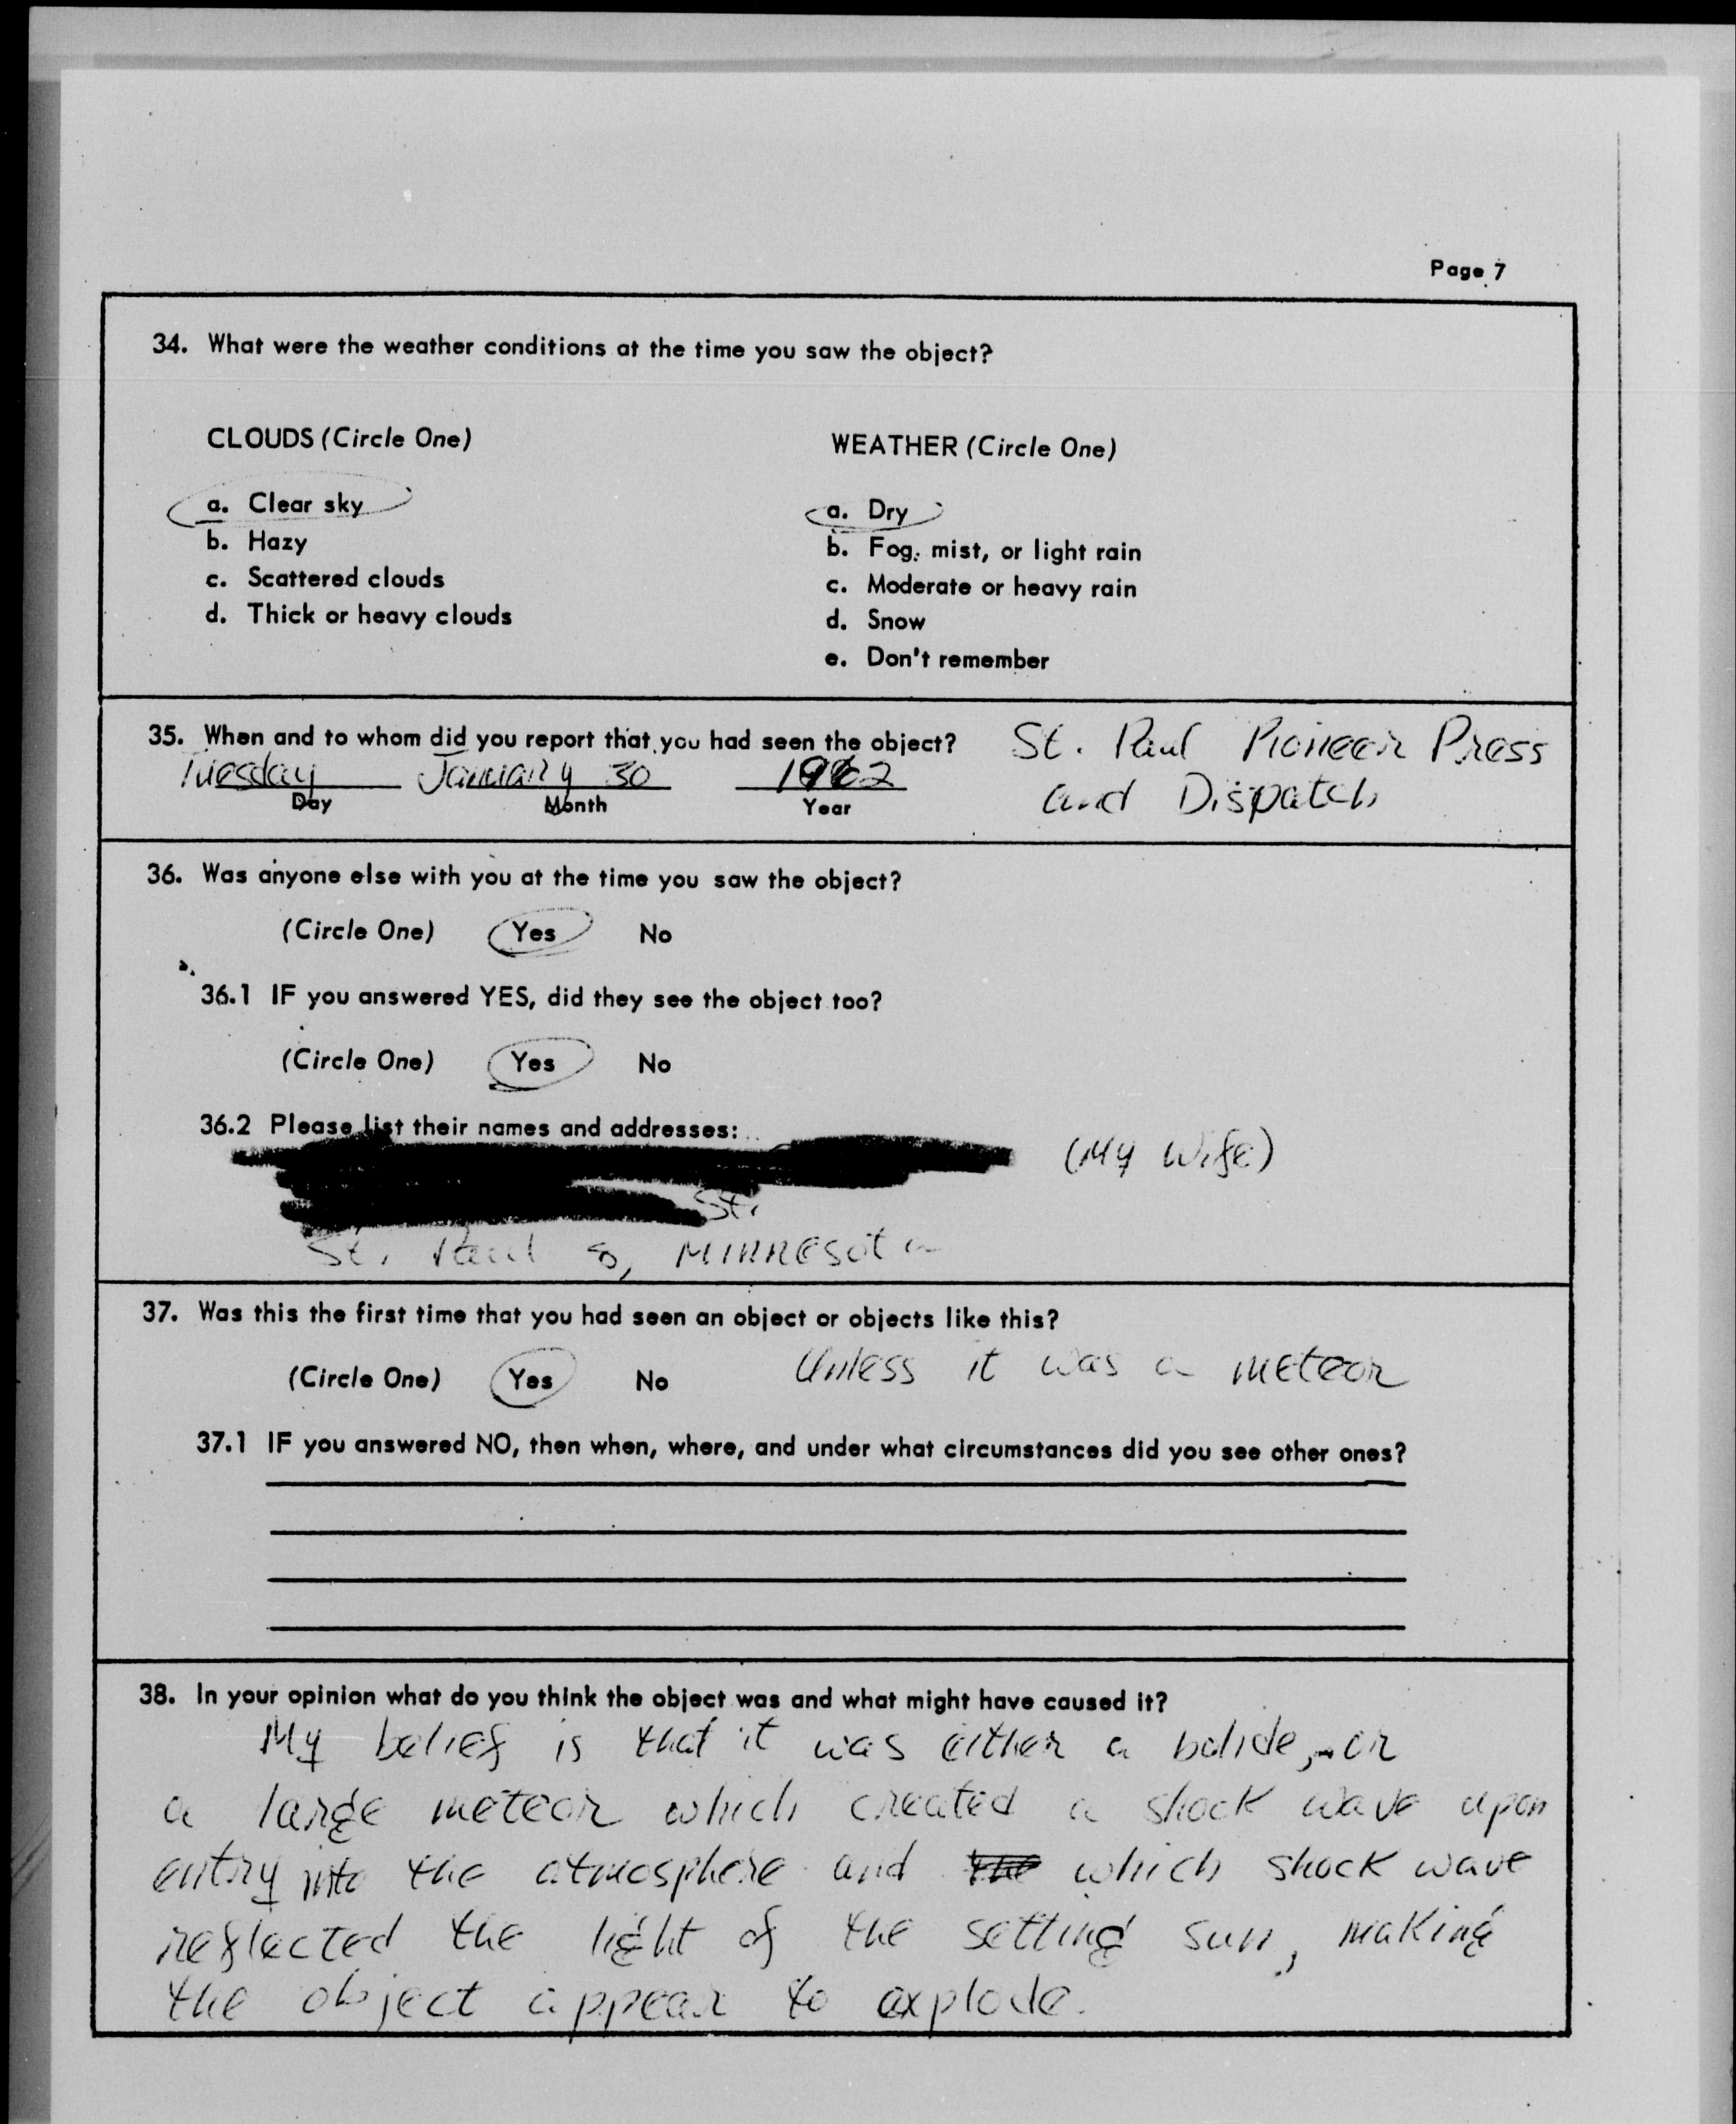 Page 7
34. What were the weather conditions at the time you saw the object?
CLOUDS (Circle One)
a. Clear sky
b. Hazy
c. Scattered clouds
d. Thick or heavy clouds
WEATHER (Circle One)
a. Dry
b. Fog, mist, or light rain
c. Moderate or heavy rain
d. Snow
e. Don't remember
35. When and to whom did you report that you had seen the object?
Tuesday January 30 1962
Day Month Year
St. Paul Pioneer Press
and Dispatch
36. Was anyone else with you at the time you saw the object?
(Circle One) Yes No
36.1 IF you answered YES, did they see the object too?
(Circle One) Yes No
36.2 Please list their names and addresses:
(My Wife)
St.
St. Paul 8, Minnesota
37. Was this the first time that you had seen an object or objects like this?
(Circle One) Yes No Unless it was a meteor
37.1 IF you answered NO, then when, where, and under what circumstances did you see other ones?
38. In your opinion what do you think the object was and what might have caused it?
My belief is that it was either a bolide, or
a large meteor which created a shock wave upon
entry into the atmosphere and the which shock wave
reflected the light of the setting sun, making
the object appear to explode.